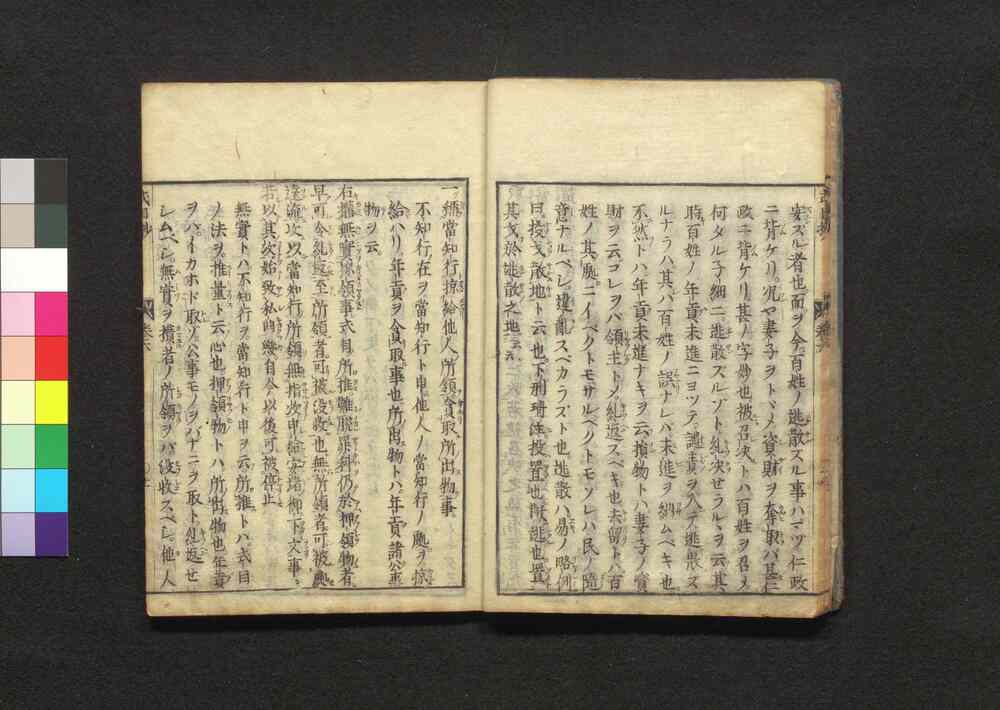 安スル者也而ヲ今百姓ノ逃散スル事ハマヅ仁政
ニ背ケリ況ヤ妻子ヲトヾメ資財ヲ奪取バ甚仁
政ニ背ケリ其ノ字妙也被召决トハ百姓ヲ召メ
何タル子細ニ逃散スルゾト糺决せラルヽヲ云其
時百姓ノ年貢未進ニヨツテ譴責ヲ入テ逃散ス
ルナラハ其ハ百姓ノ誤ナレバ未進ヲ納ムベキ也
不然トハ年貢未進ナキヲ云損物トハ妻子ノ資
財ヲ云コレヲバ領主トメ糺返スベキ也去留トハ百
姓ノ其ノ處ニイベクトモサルベクトモソレハ民ノ随
意ナルベシ違亂スベカラズト也逃散ハ易ノ略例
曰投戈散地ト云也下刑璹注投置也散逃也置
其戈於逃散之地云云
一稱當知行掠給他人所領貪取所出物事
不知行在ヲ當知行ト申他人ノ當知行ノ處ヲ掠
給ハリノ年貢ヲ貪取事也所出物トハ年貢諸公事
物ヲ云
右搆無實掠領事式目所推難脱罪科仍於押領物者
早可令糺返至所領者可被没收也無所領者可被處
遠流次以當知行所領無指次申給安堵御下文事
若以其次始致私曲歟自今以後可被停止
無實トハ不知行ヲ當知行ト申ヲ云所推トハ式目
ノ法ヲ推量ト云心也押領物トハ所出物也年貢
ヲバイカホド取ゾ公事モノヲバナニヲ取ト糺返せ
シムベシ無實ヲ搆者ノ所領ヲバ没收スベシ他人
卷六